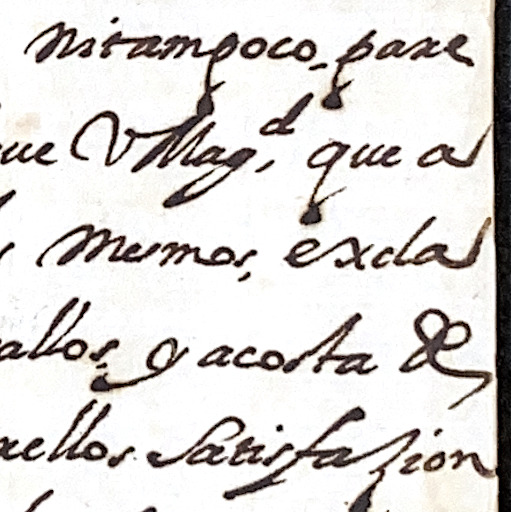 nitampoco pare
ue VMag.d que a
s mesmos, escla
allos, y acosta de
rellos Satisfazion